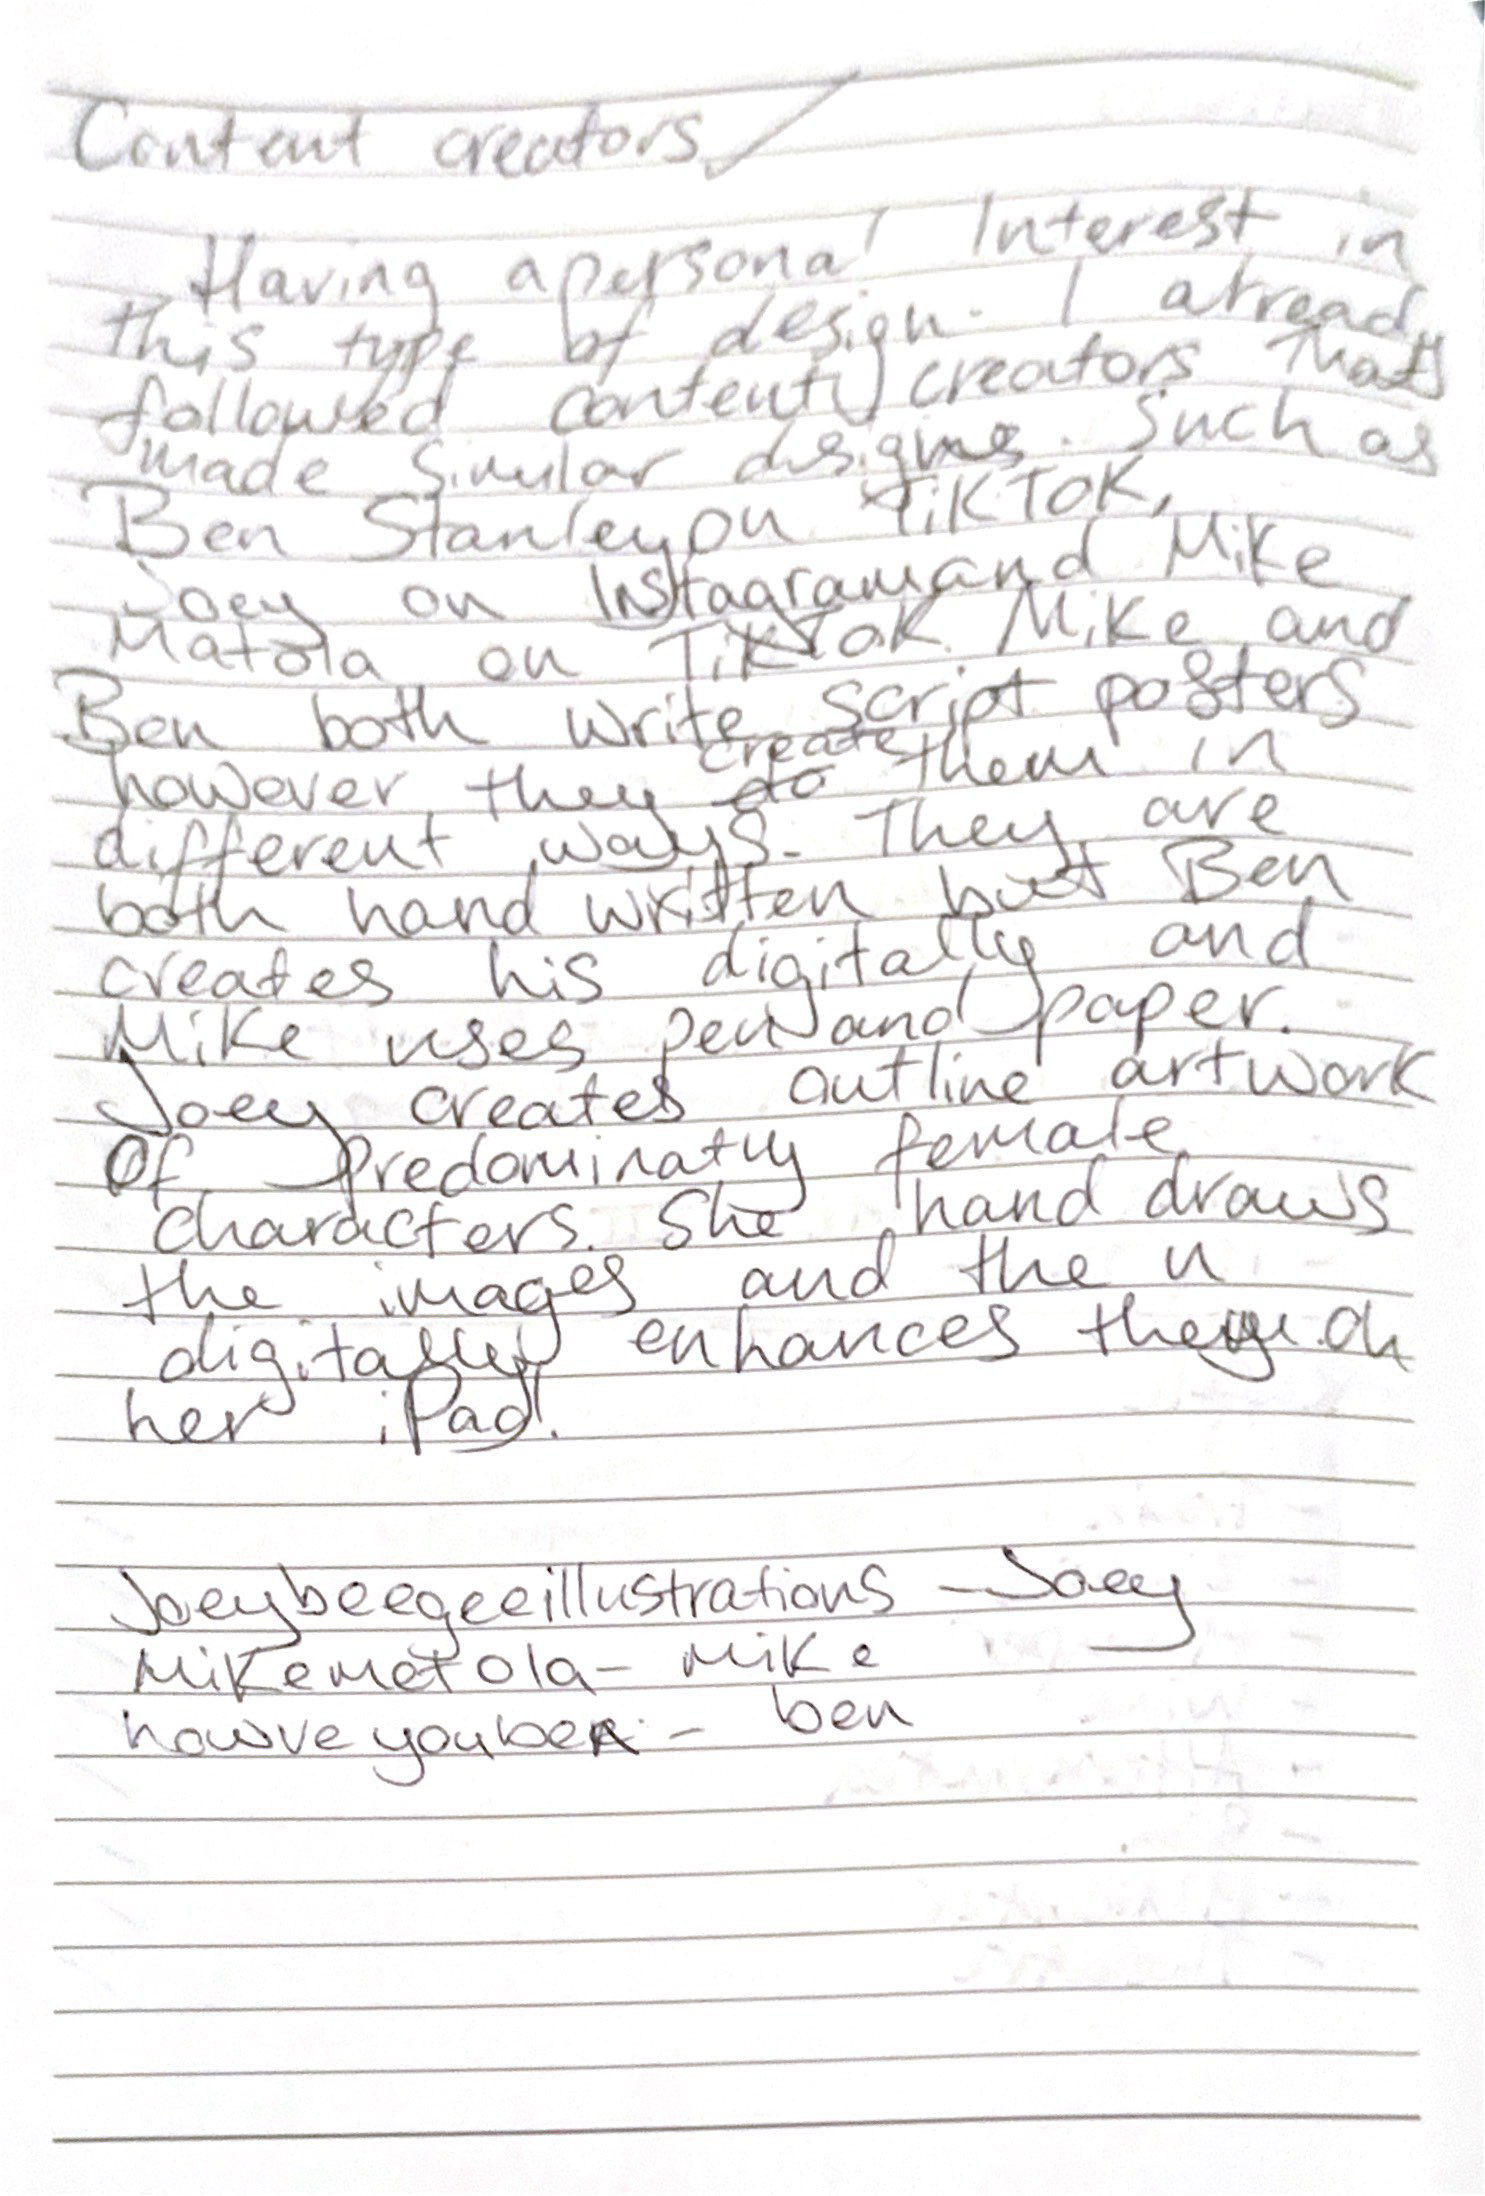 Content creators
Having a personal Interest in
this type of design. I already
followed content creators that
made similar designs. Such as
Ben Stanley on TikTok,
Joey on Instagram and Mike
Matola on TikTok. Mike and
Ben both write script posters
however they create them in
different ways. They are
both hand written but Ben
creates his digitally and
Mike uses pen and paper.
Joey creates outline artwork
Of Predominatly female
characters. She hand draws
the images and then
digitally enhances them on
her iPad.
Joeybeegeeillustrations - Joey
Mikemetola - Mike
howveyouben - ben